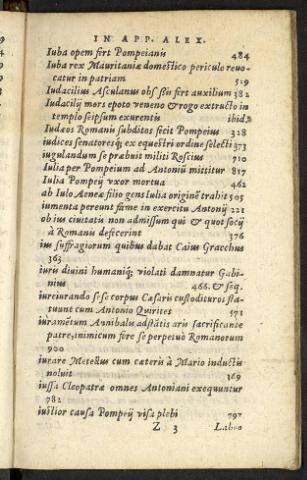 IN APP. ALEX.
Iuba opem fert Pompeianis 484
Iuba rex Mauritaniæ domestico periculo reuo-
catur in patriam 519
Iudacilius Asculanus obsessis fert auxilium 382
Iudacilij mors epoto veneno & rogo extructo in
templo seipsum exurentis ibid.
Iudæos Romanis subditos fecit Pompeius 328
iudices senatoresq; ex equestri ordine selecti 373
iugulandum se præbuit militi Roscius 710
Iulia per Pompeium ad Antoniū mittitur 817
Iulia Pompeij vxor mortua 462
ab Iulo Aeneæ filio gens Iulia originē trahit 505
iumenta pereunt fame in exercitu Antonij 221
ob ius ciuitatis non admissum qui & quot socij
à Romanis desecerint 376
ius suffragiorum quibus dabat Caius Gracchus
363
iuris diuini humaniq; violati damnatur Gabi-
nius 466. & seq.
iureiurando se se corpus Cæsaris custodituros sta-
tuunt cum Antonio Quirites 571
iuramētum Annibalis adstātis aris sacrificante
patre, inimicum fore se perpetuò Romanorum
900
iurare Metellus cum cæteris à Mario inductis
noluit 369
iussa Cleopatræ omnes Antoniani exequuntur
782
iustior causa Pompeij visa plebi 797
Z 3 Labeo